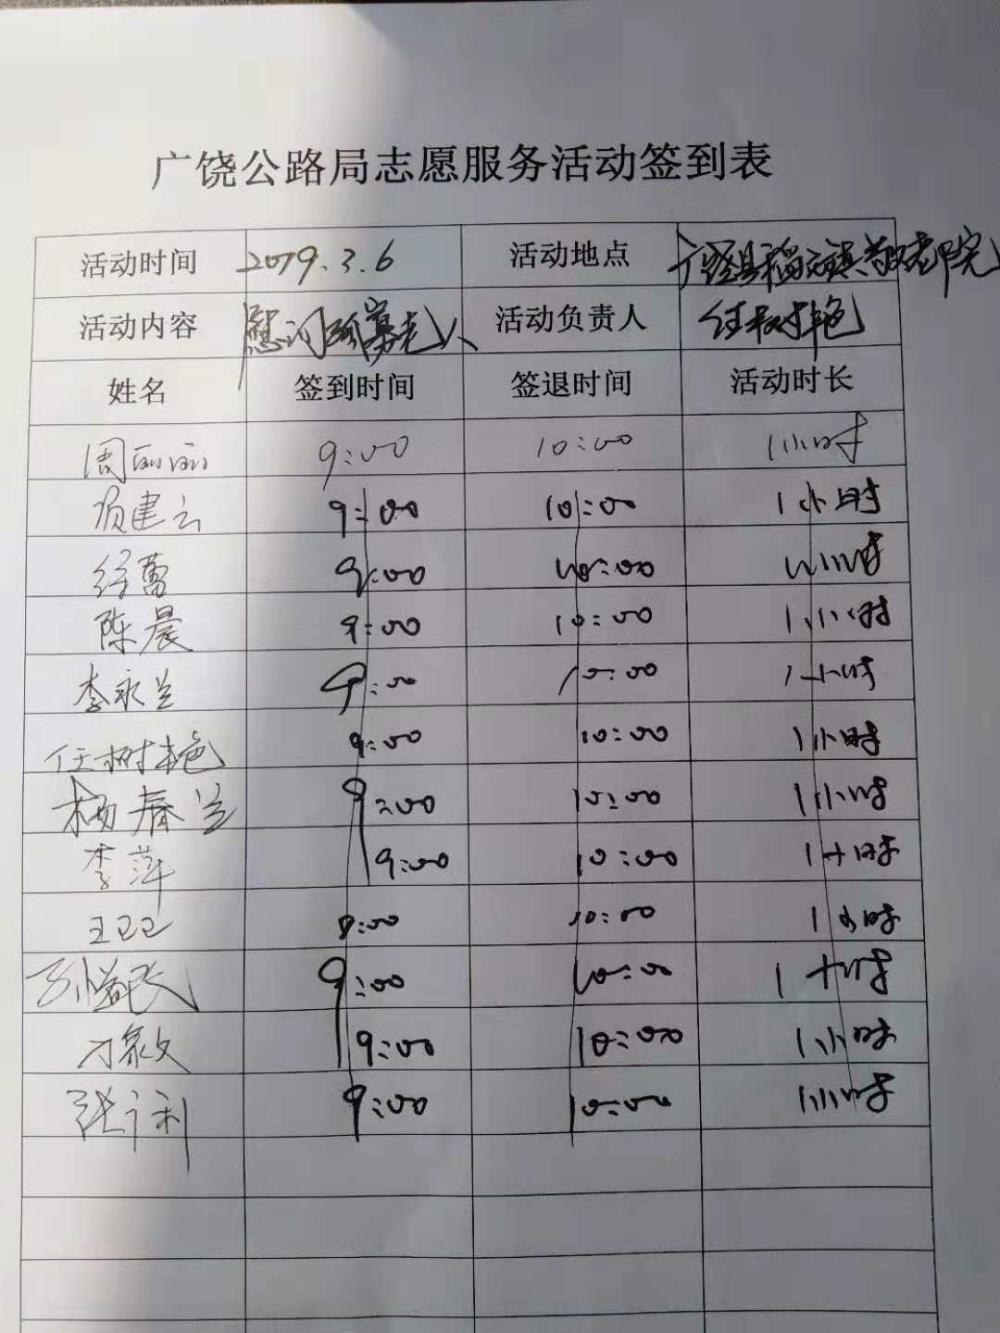 广饶公路局志愿服务活动签到表
活动时间 2019.3.6 活动地点 广饶县稻庄镇敬老院
活动内容 慰问孤寡老人 活动负责人 任树艳
姓名 签到时间 签退时间 活动时长
周丽丽 9:00 10:00 1小时
项建云 9:00 10:00 1小时
徐蕾 9:00 10:00 1小时
陈晨 9:00 10:00 1小时
李永兰 9:00 10:00 1小时
任树艳 9:00 10:00 1小时
杨春兰 9:00 10:00 1小时
李萍 9:00 10:00 1小时
王卫卫 9:00 10:00 1小时
9:00 10:00 1小时
9:00 10:00 1小时
张利 9:00 10:00 1小时